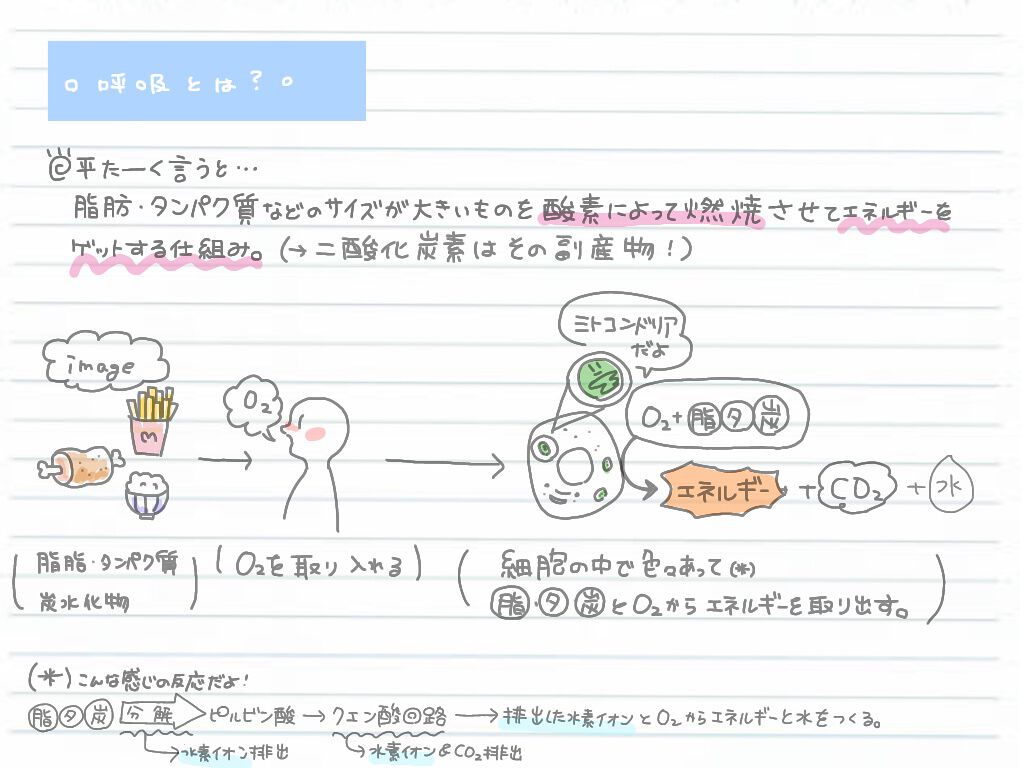 。呼吸とは？。
◎平たーく言うと…
脂肪・タンパク質などのサイズが大きいものを酸素によって燃焼させてエネルギーを
ゲットする仕組み。(→二酸化炭素はその副産物！)
ミトコンドリア
だよ
image
O₂
M
O₂+脂タ炭
エネルギー + CO₂ + 水
(脂脂・タンパク質
炭水化物)
(O₂を取り入れる)
(細胞の中で色々あって(*)
脂・タ炭とO₂からエネルギーを取り出す。)
(*)こんな感じの反応だよ！
脂タ炭 分解 ピルビン酸→クエン酸回路→排出した水素イオンとO₂からエネルギーと水をつくる。
→水素イオン排出
→水素イオン&CO₂排出